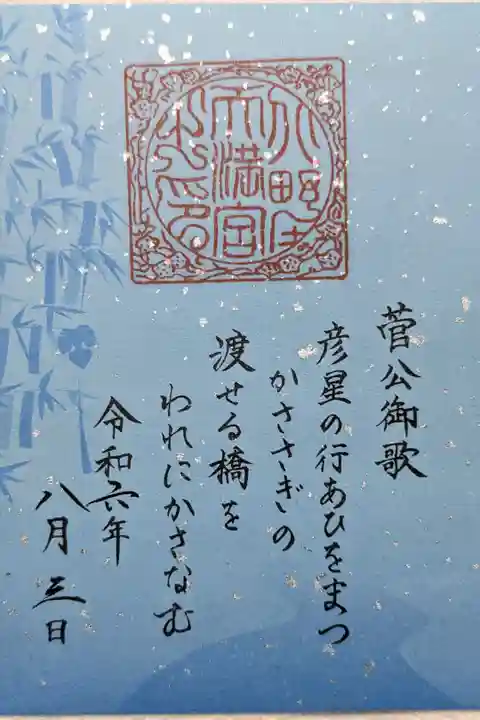 天満宮
菅公御歌
彦星の行あひをまつ
かささぎの
渡せる橋を
われにかさなむ
令和六年
八月三日